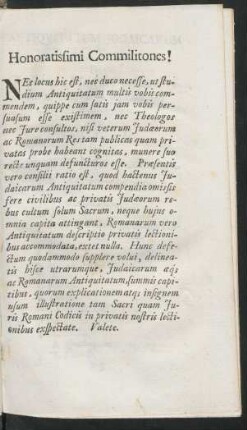 Honoratissimi Commilitones!
NEc locus hic est, nec duco necesse, ut stu-
dium Antiquitatum multis vobis com-
mendem, quippe cum satis jam vobis per-
suasum esse existimem, nec Theologos
nec Jure consultos, nisi veterum Judæorum
ac Romanorum Res tam publicas quam pri-
vatas probe habeant cognitas, munere suo
recte unquam defuncturos esse. Præsentis
vero consilii ratio est, quod hactenus Ju-
daicarum Antiquitatum compendia omisis-
sere civilibus ac privatis Judæorum re-
bus cultum solum Sacrum, neque hujus o-
mnia capita attingant, Romanarum vero
Antiquitatum descriptio privatis lectioni-
bus accommodata, extet nulla. Hunc defe-
ctum quadammodo supplere volui, delinea-
tis hisce utrarumque, Judaicarum atq;
ac Romanarum Antiquitatum, summis capi-
tibus, quorum explicationem atq; insignem
usum illustratione tam Sacri quam Ju-
ris Romani Codicis in privatis nostris lecti-
onibus exspectate. Valete.